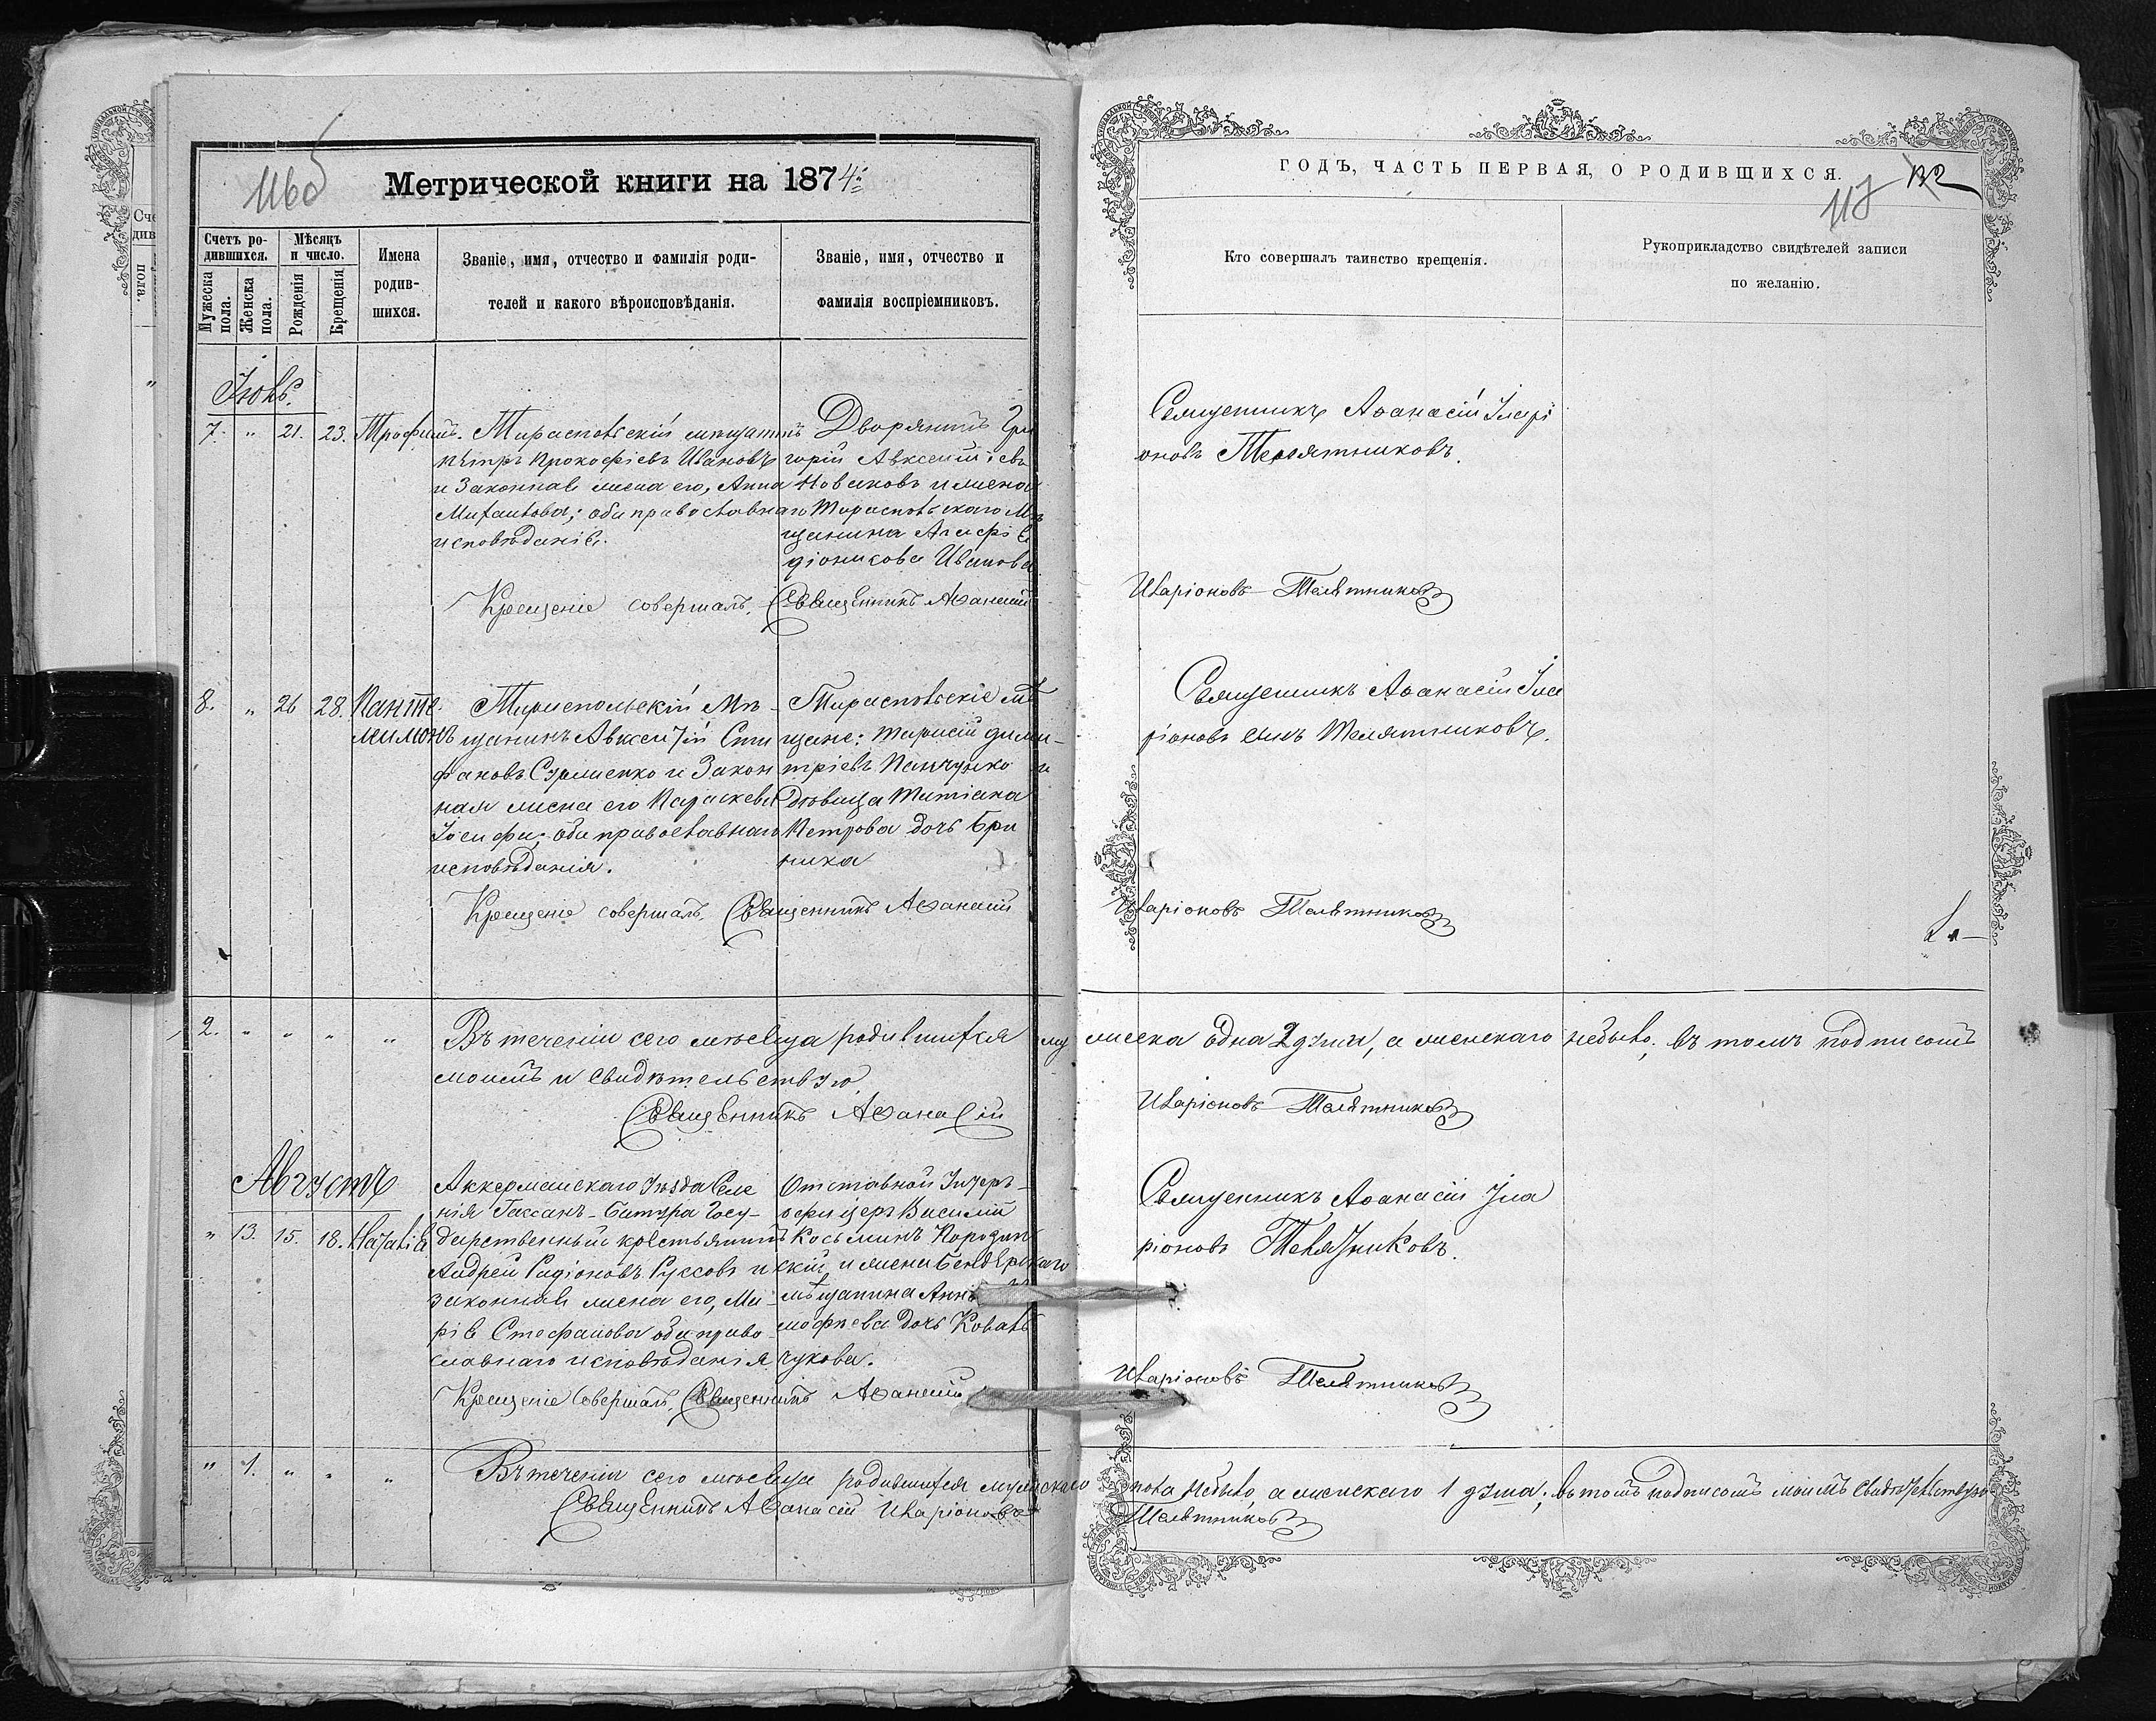 Метрической книги на 1874
116 об
Счетъ родившихся.
Мѣсяцъ и число.
Мужеска пола.
Женска пола.
Рожденія
Крещенія
Имена родившихся.
Званіе, имя, отчество и фамилія роди-
телей и какого вѣроисповѣданія.
Званіе, имя, отчество и
фамилія воспріемниковъ.
Іюль.
7. " 21. 23. Трофимъ.
Тираспольскій мѣщанинъ
Пётръ Прокофіевъ Ивановъ
и законная жена его, Анна
Михаилова; оба православнаго
исповѣданія.
Дворянинъ Гри
горій Авксентіевъ
Новаковъ и жена
Тираспольскаго Мѣ
щанина Агафія
Ивановa
Крещеніе совершалъ, Священникъ Аѳанасій
8. " 26 28. Панте
лимонъ
Тираспольскій Мѣ-
щанинъ Авксентій Сти
фановъ и Закон
ная жена его Параскева
Іосифа; оба православнаго
исповѣданія.
Тираспольскіе мѣ
щане: Тарасій Дими-
тріевъ Панчунко и
Дѣвица Татіана
Петрова дочь Бри
ника
Крещеніе совершалъ, Священникъ Аѳанасій
2. " " " "
Въ теченіи сего мѣсяца родившихся му
моимъ и свидѣтельствую
Священникъ Аѳанасій
Августъ
" 13. 15. 18. Наталія
Аккерманскаго уѣзда Селе
нія Гассанъ-Батыра Госу-
дарственный крестьянинъ
Андрей Радіоновъ Руссовъ и
законная жена его, Ма-
рія Стефанова оба право
славнаго исповѣданія
Отставной Унтеръ-
офицеръ Василій
Косьминъ
и жена Бендерскаго
мѣщанина Анна
дочь Коваль
чукова.
Крещеніе совершалъ, Священникъ Аѳанасій
" 1. " " "
Въ теченіи сего мѣсяца родившихся мужскаго
Священникъ Аѳанасій Иларіоновъ
ГОДЪ, ЧАСТЬ ПЕРВАЯ, О РОДИВШИХСЯ.
117
Кто совершалъ таинство крещенія.
Рукоприкладство свидѣтелей записи
по желанію.
Священникъ Аѳанасій Илари
оновъ Телятниковъ.
Иларіоновъ Телятниковъ
Священникъ Аѳанасій Ила
ріоновъ сынъ Телятниковъ.
Иларіоновъ Телятниковъ
жеска одна 2 души, а женскаго небыло; въ томъ подписомъ
Иларіоновъ Телятниковъ
Священникъ Аѳанасій Ила
ріоновъ Телятниковъ.
Иларіоновъ Телятниковъ
пола небыло, а женскаго 1 душа; въ томъ подписомъ моимъ свидѣтельствую
Телятниковъ